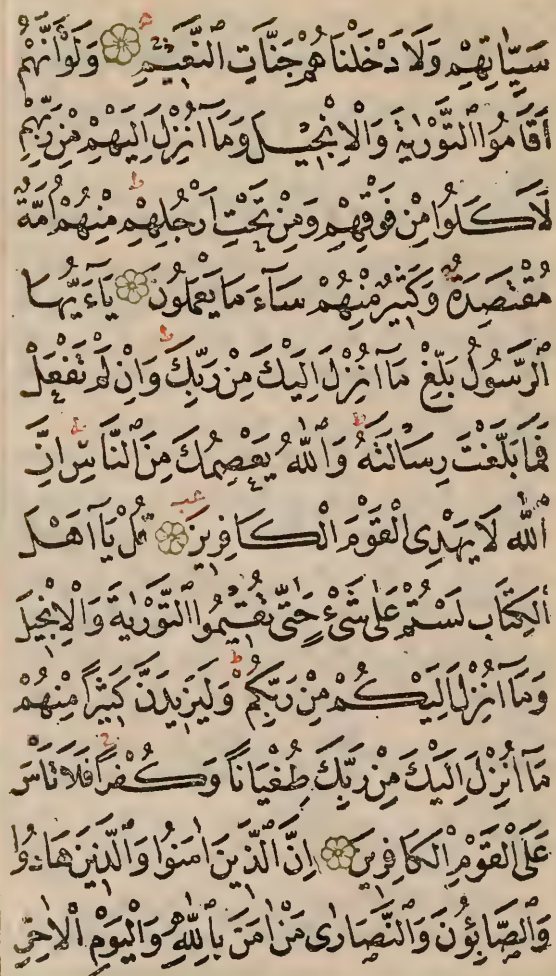 سَيِّئَاتِهِمْ وَلَاَدْخَلْنَاهُمْ جَنَّاتِ النَّعِيمِ وَلَوْ اَنَّهُمْ
اَقَامُوا التَّوْرٰيةَ وَالْاِنْجِيلَ وَمَٓا اُنْزِلَ اِلَيْهِمْ مِنْ رَبِّهِمْ
لَاَكَلُوا مِنْ فَوْقِهِمْ وَمِنْ تَحْتِ اَرْجُلِهِمْ مِنْهُمْ اُمَّةٌ
مُقْتَصِدَةٌ وَكَثِيرٌ مِنْهُمْ سَٓاءَ مَا يَعْمَلُونَ يَٓا اَيُّهَا
الرَّسُولُ بَلِّغْ مَٓا اُنْزِلَ اِلَيْكَ مِنْ رَبِّكَ وَاِنْ لَمْ تَفْعَلْ
فَمَا بَلَّغْتَ رِسَالَتَهُ وَاللّٰهُ يَعْصِمُكَ مِنَ النَّاسِ اِنَّ
اللّٰهَ لَا يَهْدِى الْقَوْمَ الْكَافِرِينَ قُلْ يَٓا اَهْلَ
الْكِتَابِ لَسْتُمْ عَلٰى شَىْءٍ حَتّٰى تُقِيمُوا التَّوْرٰيةَ وَالْاِنْجِيلَ
وَمَٓا اُنْزِلَ اِلَيْكُمْ مِنْ رَبِّكُمْ وَلَيَزِيدَنَّ كَثِيرًا مِنْهُمْ
مَٓا اُنْزِلَ اِلَيْكَ مِنْ رَبِّكَ طُغْيَانًا وَكُفْرًا فَلَا تَأْسَ
عَلَى الْقَوْمِ الْكَافِرِينَ اِنَّ الَّذِينَ اٰمَنُوا وَالَّذِينَ هَادُوا
وَالصَّابِؤُنَ وَالنَّصَارٰى مَنْ اٰمَنَ بِاللّٰهِ وَالْيَوْمِ الْاٰخِرِ